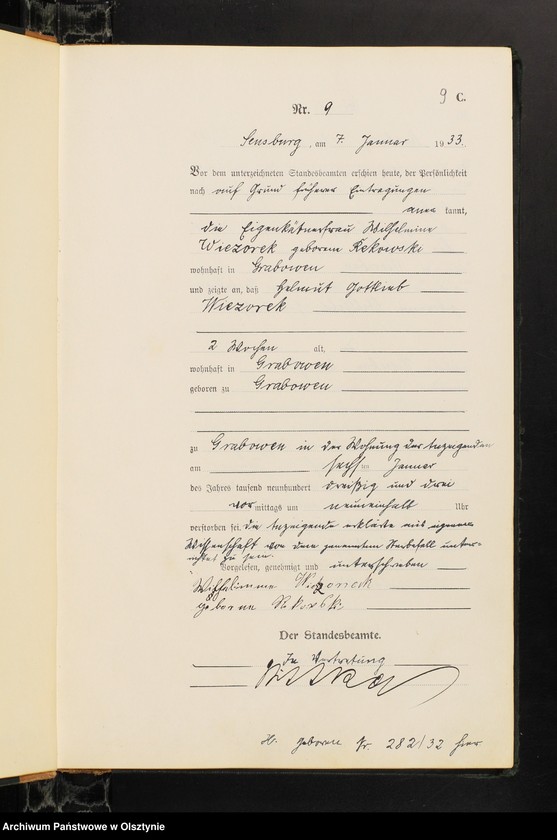 9 C.
Nr. 9
Sensburg, am 7. Januar 1933.
Vor dem unterzeichneten Standesbeamten erschien heute, der Persönlichkeit
nach auf Grund früherer Eintragungen
aner kannt,
die Eigenkätnerfrau Wilhelmine
Wiezorek geborene Rekowski
wohnhaft in Grabowen
und zeigte an, daß Helmut Gottlieb
Wiezorek
2 Wochen alt,
wohnhaft in Grabowen
geboren zu Grabowen
zu Grabowen in der Wohnung der Anzeigenden
am sechsten Januar
des Jahres tausend neunhundert dreißig und drei
vormittags um neuneinhalb Uhr
verstorben sei. Die Anzeigende erklärte aus eigener
Wissenschaft von dem genannten Sterbefall unter-
richtet zu sein.
Vorgelesen, genehmigt und unterschrieben
Wilhelmine
geborne
Der Standesbeamte.
In Vertretung
geboren Nr. 282/32 hier
Archiwum Państwowe w Olsztynie